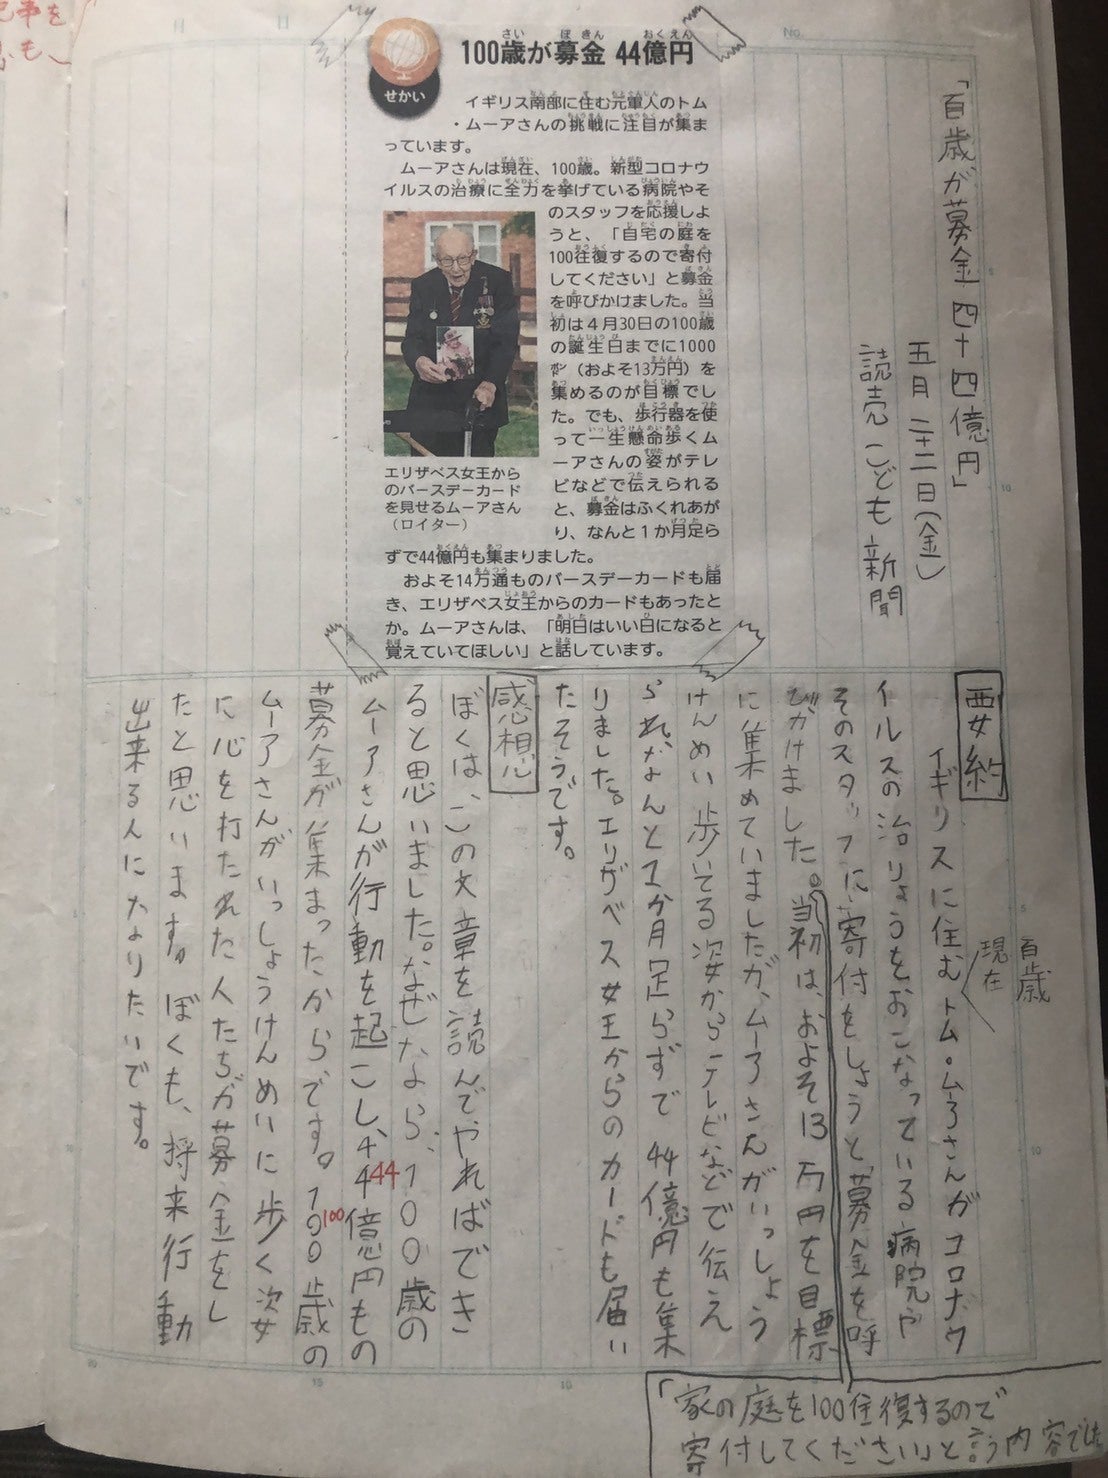 100歳が募金 44億円
せかい
イギリス南部に住む元軍人のトム
・ムーアさんの挑戦に注目が集ま
っています。
ムーアさんは現在、100歳。新型コロナウ
イルスの治療に全力を挙げている病院やそ
のスタッフを応援しよ
うと、「自宅の庭を
100往復するので寄付
してください」と募金
を呼びかけました。当
初は4月30日の100歳
の誕生日までに1000
㍀（およそ13万円）を
集めるのが目標でし
た。でも、歩行器を使
って一生懸命歩くム
ーアさんの姿がテレ
ビなどで伝えられる
と、募金はふくれあが
り、なんと1か月足ら
ずで44億円も集まりました。
およそ14万通ものバースデーカードも届
き、エリザベス女王からのカードもあったと
か。ムーアさんは、「明日はいい日になると
覚えていてほしい」と話しています。
エリザベス女王から
のバースデーカード
を見せるムーアさん
（ロイター）
No.
「百歳が募金 四十四億円」
五月二十二日(金)
読売こども新聞
要約
百歳
現在
イギリスに住むトム・ムーアさんがコロナウ
イルスの治りょうをおこなっている病院や
そのスタッフに寄付をしようと募金を呼
びかけました。当初は、およそ13万円を目標
に集めていましたが、ムーアさんがいっしょう
けんめい歩いてる姿からテレビなどで伝え
られ、なんと1か月足らずで44億円も集
りました。エリザベス女王からのカードも届い
たそうです。
「家の庭を100往復するので
寄付してください」と言う内容でした
感想
ぼくは、この文章を読んでやればでき
ると思いました。なぜなら、100歳の
ムーアさんが行動を起こし、44億円もの
44
募金が集まったからです。100歳の
100
ムーアさんがいっしょうけんめいに歩く姿
に心を打たれた人たちが募金をし
たと思います。ぼくも、将来行動
出来る人になりたいです。